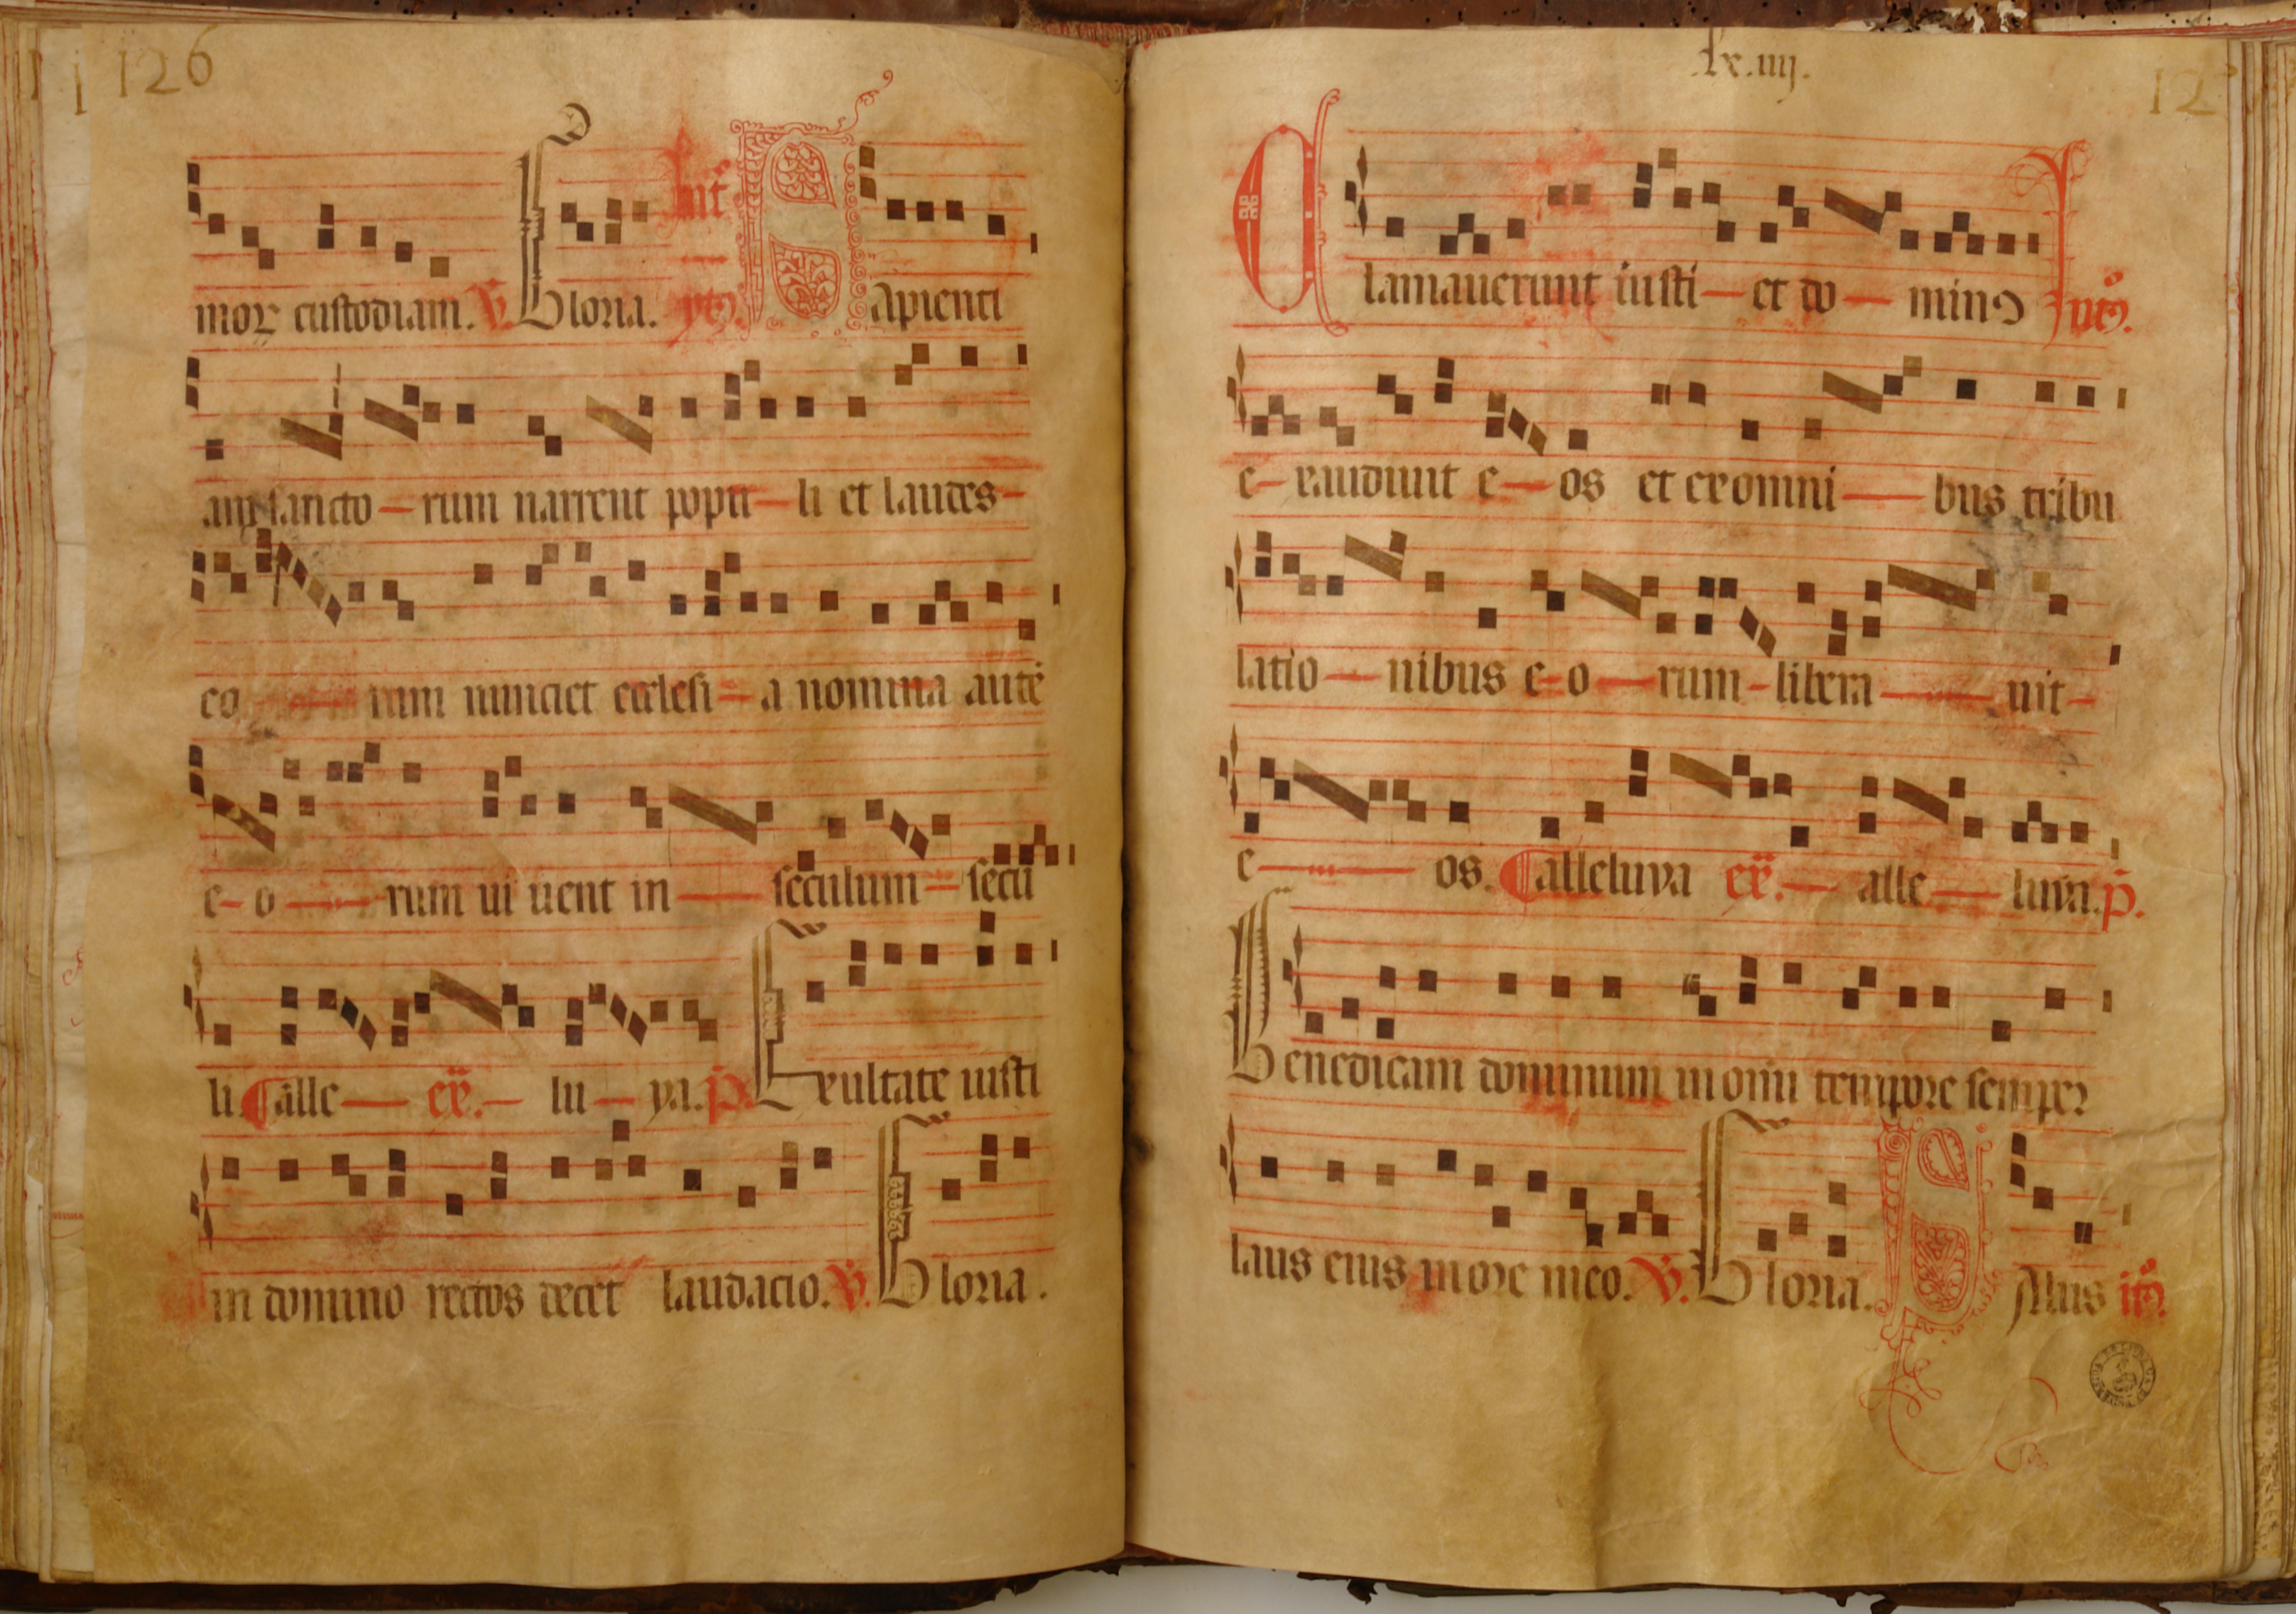 126
moꝝ custodiam. ℣. Gloria. Sapienti
am sancto — rum narrent popu — li et laudes —
eo — rum nunciet ecclesi — a nomina autē
e — o — rum ui uent in — seculum — secu
li. alle — ex̄. — lu — ya. p̄. Exultate iusti
in domino rectos decet laudacio. ℣. Gloria.
lx.iiij.
Clamauerunt iusti — et do — minꝯ
e — xaudiuit e — os et ex omni — bus tribu
latio — nibus e — o — rum — libera — uit —
e — os. alleluya ex̄. — alle — luya. p̄.
Benedicam dominum in omni tempore semper
laus eius in ore meo. ℣. Gloria. Salus